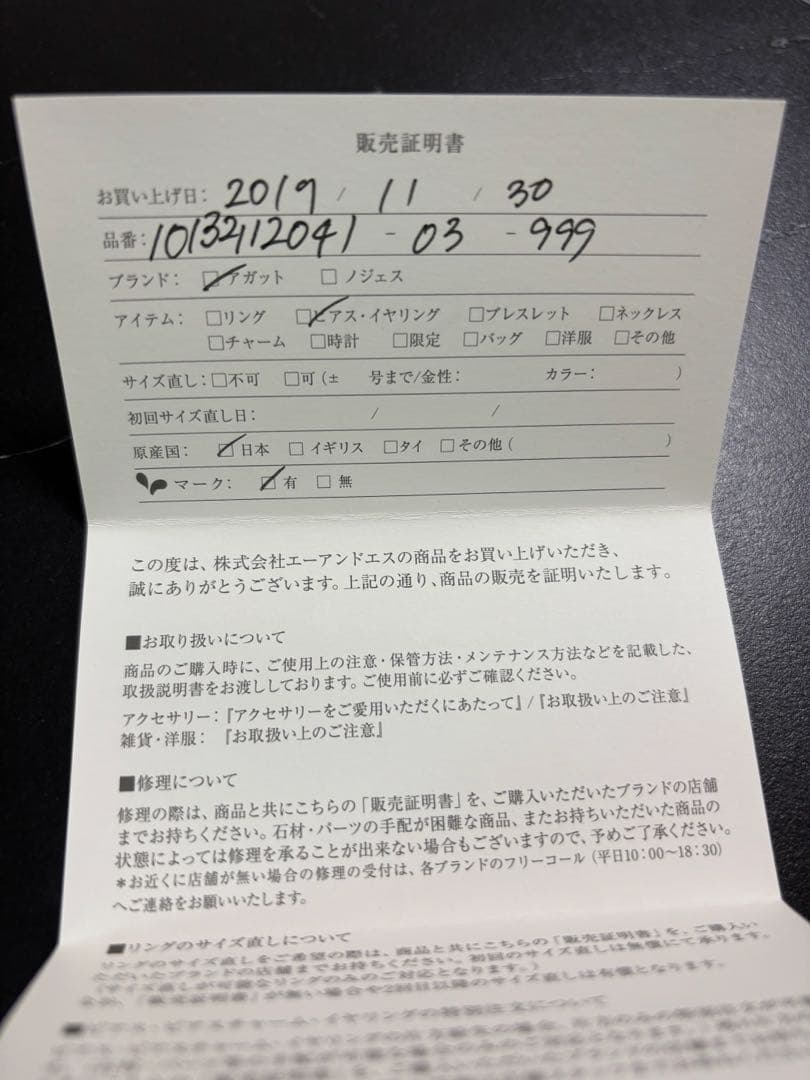 販売証明書
お買い上げ日： 2019 / 11 / 30
品番：1013212041 - 03 - 999
ブランド： ☑アガット □ノジェス
アイテム： □リング ☑ピアス・イヤリング □ブレスレット □ネックレス
□チャーム □時計 □限定 □バッグ □洋服 □その他
サイズ直し：□不可 □可（± 号まで/金性： カラー： ）
初回サイズ直し日： / /
原産国： ☑日本 □イギリス □タイ □その他（ ）
マーク： ☑有 □無
この度は、株式会社エーアンドエスの商品をお買い上げいただき、
誠にありがとうございます。上記の通り、商品の販売を証明いたします。
■お取り扱いについて
商品のご購入時に、ご使用上の注意・保管方法・メンテナンス方法などを記載した、
取扱説明書をお渡ししております。ご使用前に必ずご確認ください。
アクセサリー：『アクセサリーをご愛用いただくにあたって』/『お取扱い上のご注意』
雑貨・洋服： 『お取扱い上のご注意』
■修理について
修理の際は、商品と共にこちらの「販売証明書」を、ご購入いただいたブランドの店舗
までお持ちください。石材・パーツの手配が困難な商品、またお持ちいただいた商品の
状態によっては修理を承ることが出来ない場合もございますので、予めご了承ください。
＊お近くに店舗が無い場合の修理の受付は、各ブランドのフリーコール（平日10：00〜18：30）
へご連絡をお願いいたします。
■リングのサイズ直しについて
リングのサイズ直しをご希望の際は、商品と共にこちらの「販売証明書」を、ご購入い
ただいたブランドの店舗までお持ちください。初回のサイズ直しは無償にて承ります。
（サイズ直しが可能なリングのみのご対応となります。）
なお、「販売証明書」が無い場合や2回目以降のサイズ直しは有償となります。